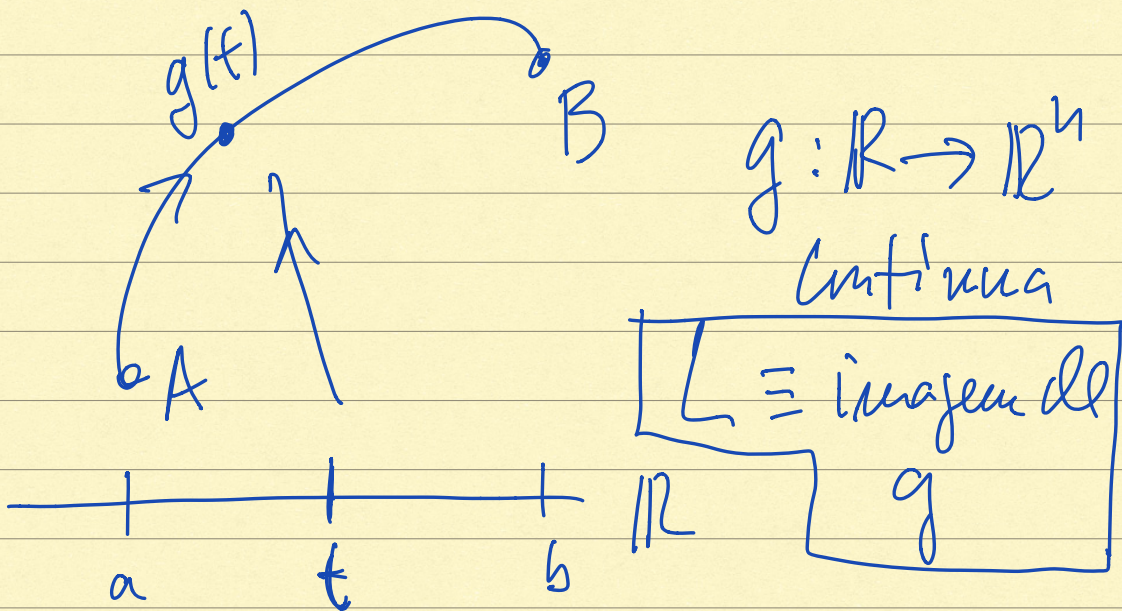 g(t)
B
g : ℝ → ℝⁿ
contínua
A
L ≡ imagem de
g
ℝ
a
t
b